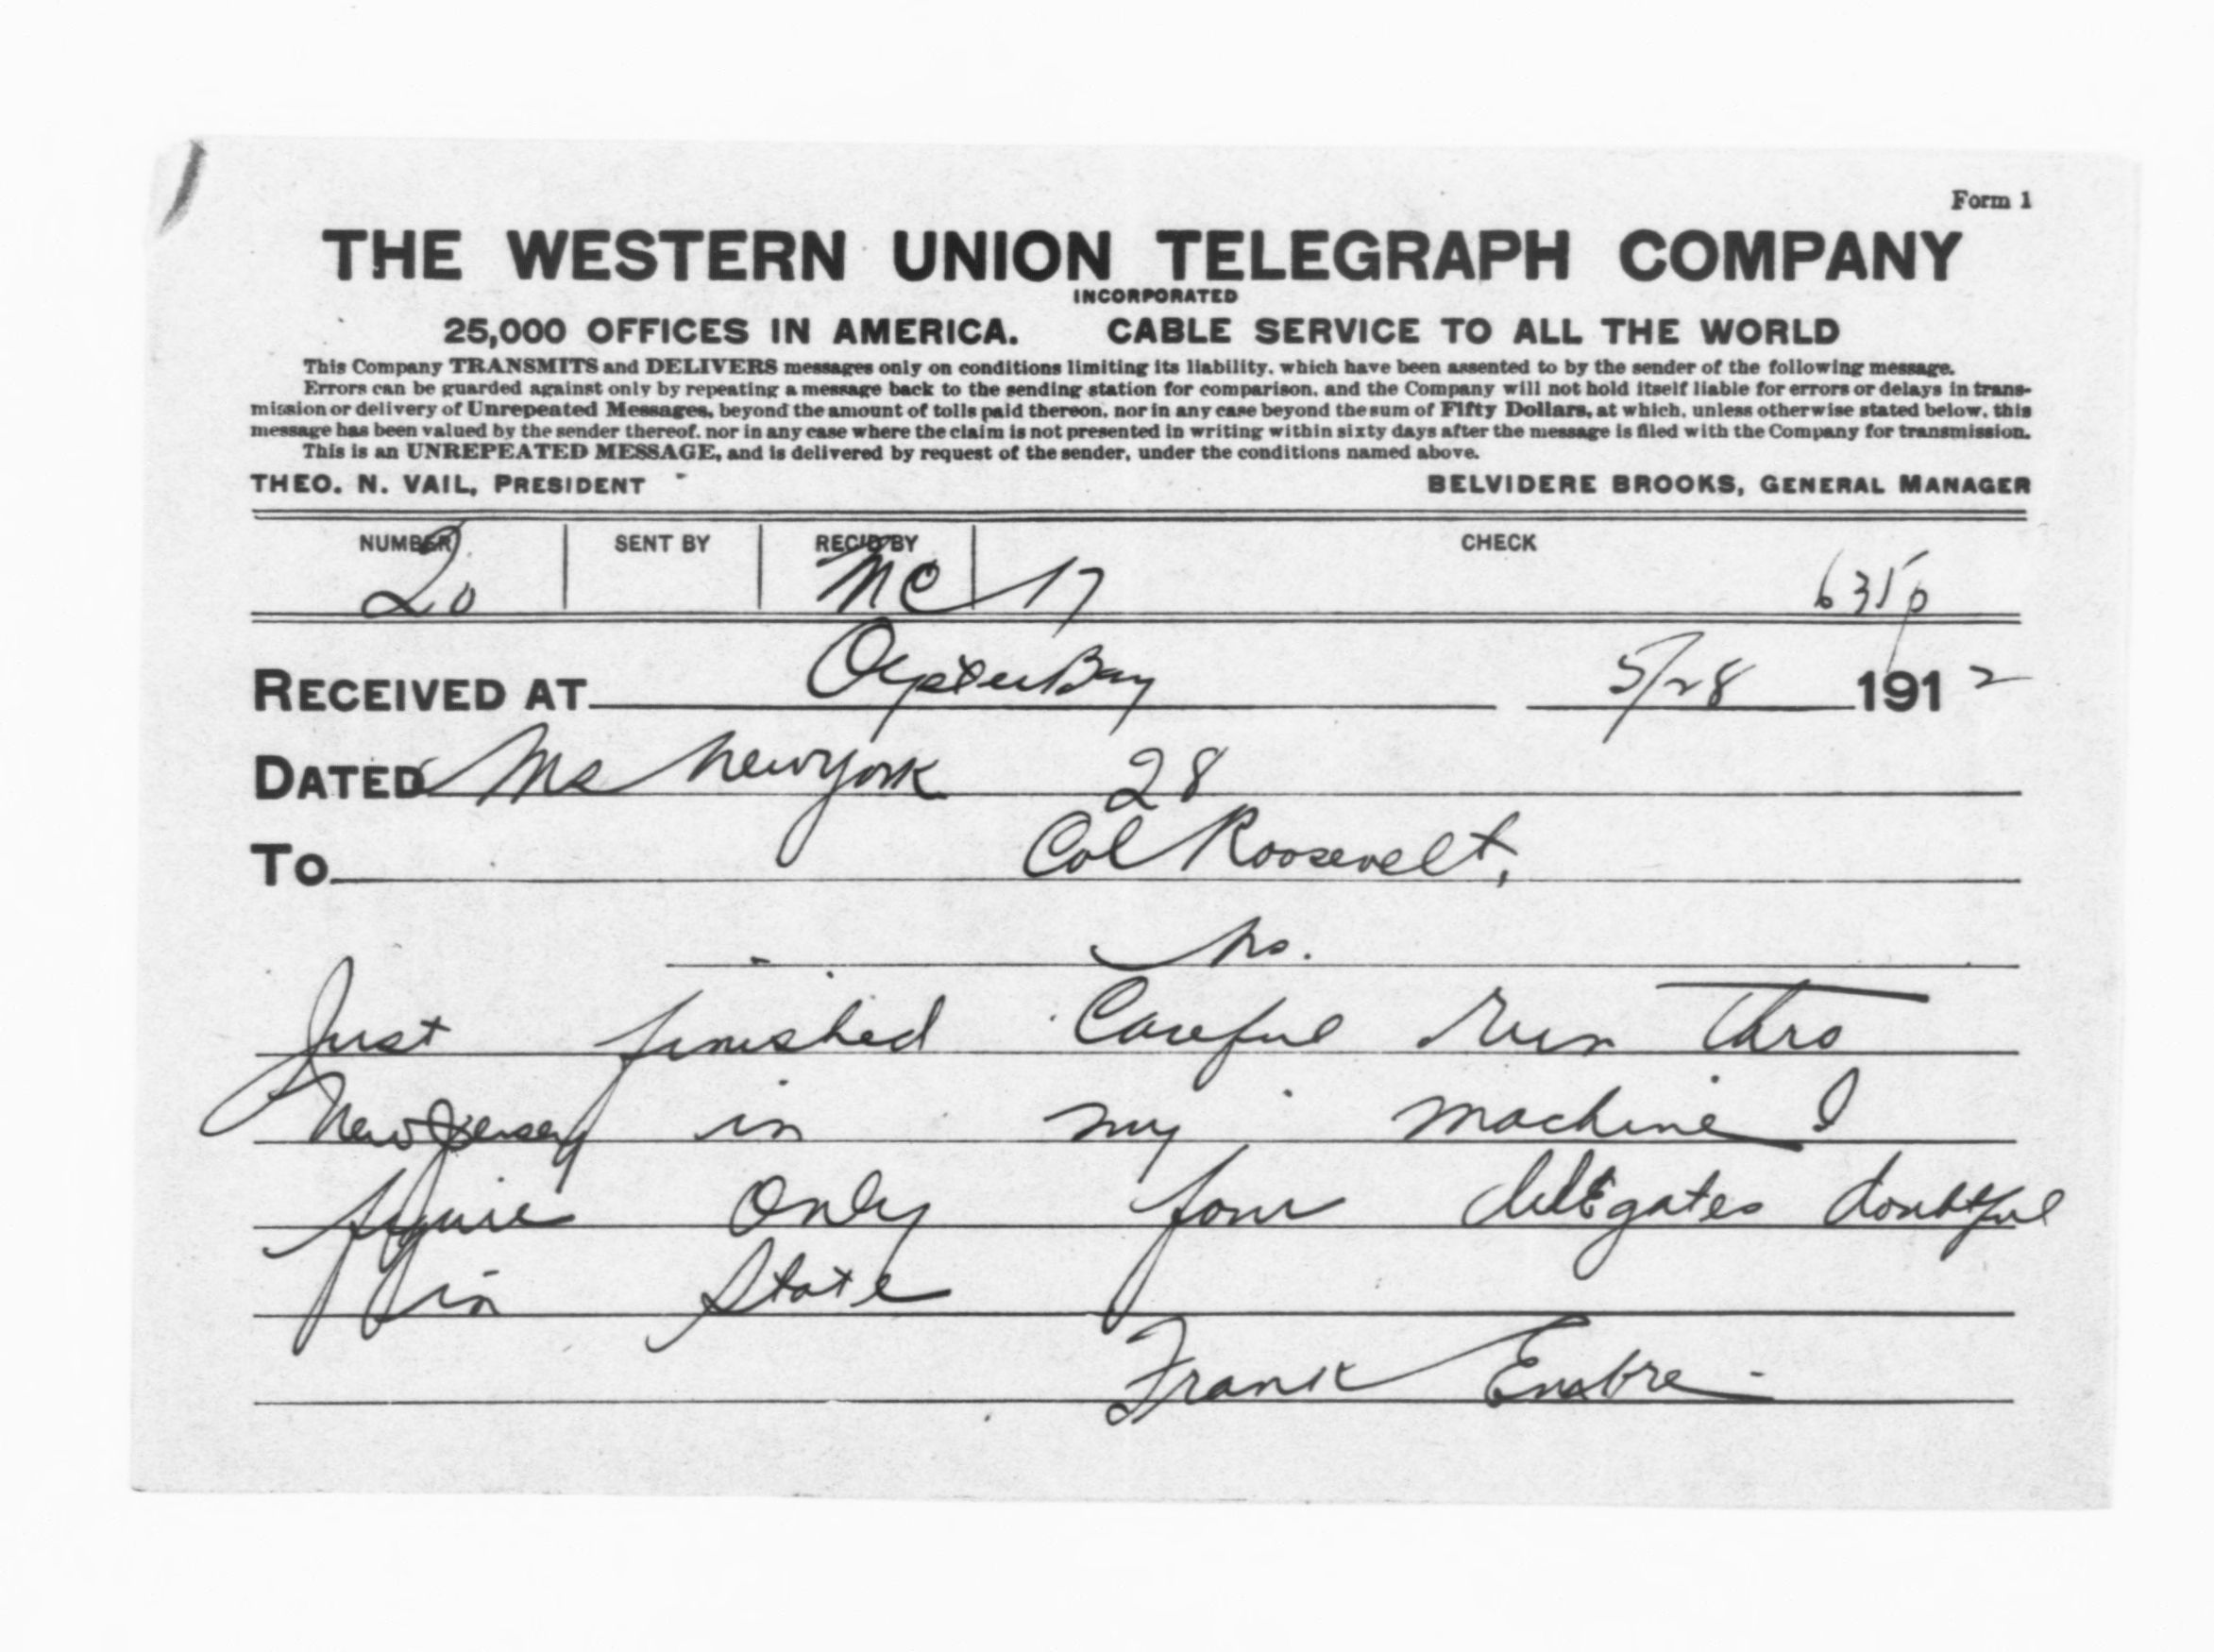 Form 1
THE WESTERN UNION TELEGRAPH COMPANY
INCORPORATED
25,000 OFFICES IN AMERICA. CABLE SERVICE TO ALL THE WORLD
This Company TRANSMITS and DELIVERS messages only on conditions limiting its liability, which have been assented to by the sender of the following message.
Errors can be guarded against only by repeating a message back to the sending station for comparison, and the Company will not hold itself liable for errors or delays in trans-
mission or delivery of Unrepeated Messages, beyond the amount of tolls paid thereon, nor in any case beyond the sum of Fifty Dollars, at which, unless otherwise stated below, this
message has been valued by the sender thereof, nor in any case where the claim is not presented in writing within sixty days after the message is filed with the Company for transmission.
This is an UNREPEATED MESSAGE, and is delivered by request of the sender, under the conditions named above.
THEO. N. VAIL, PRESIDENT BELVIDERE BROOKS, GENERAL MANAGER
NUMBER SENT BY REC'D BY CHECK
20 MC 17 635p
RECEIVED AT Oyster Bay 5/28 1912
DATED New York 28
TO Col Roosevelt,
Just finished Careful run thro
New Jersey in my machine I
figure only four delegates doubtful
in State
Frank